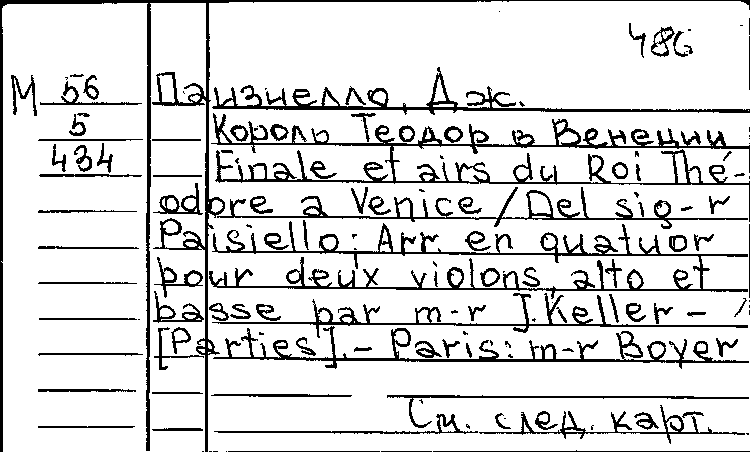 486
М 56 Паизиелло, Дж.
5 Король Теодор в Венеции
434 Finale et airs du Roi Thé-
odore a Venice / Del sig-r
Paisiello; Arr. en quatuor
pour deux violons, alto et
basse par m-r J. Keller –
[Parties]. – Paris: m-r Boyer
См. след. карт.